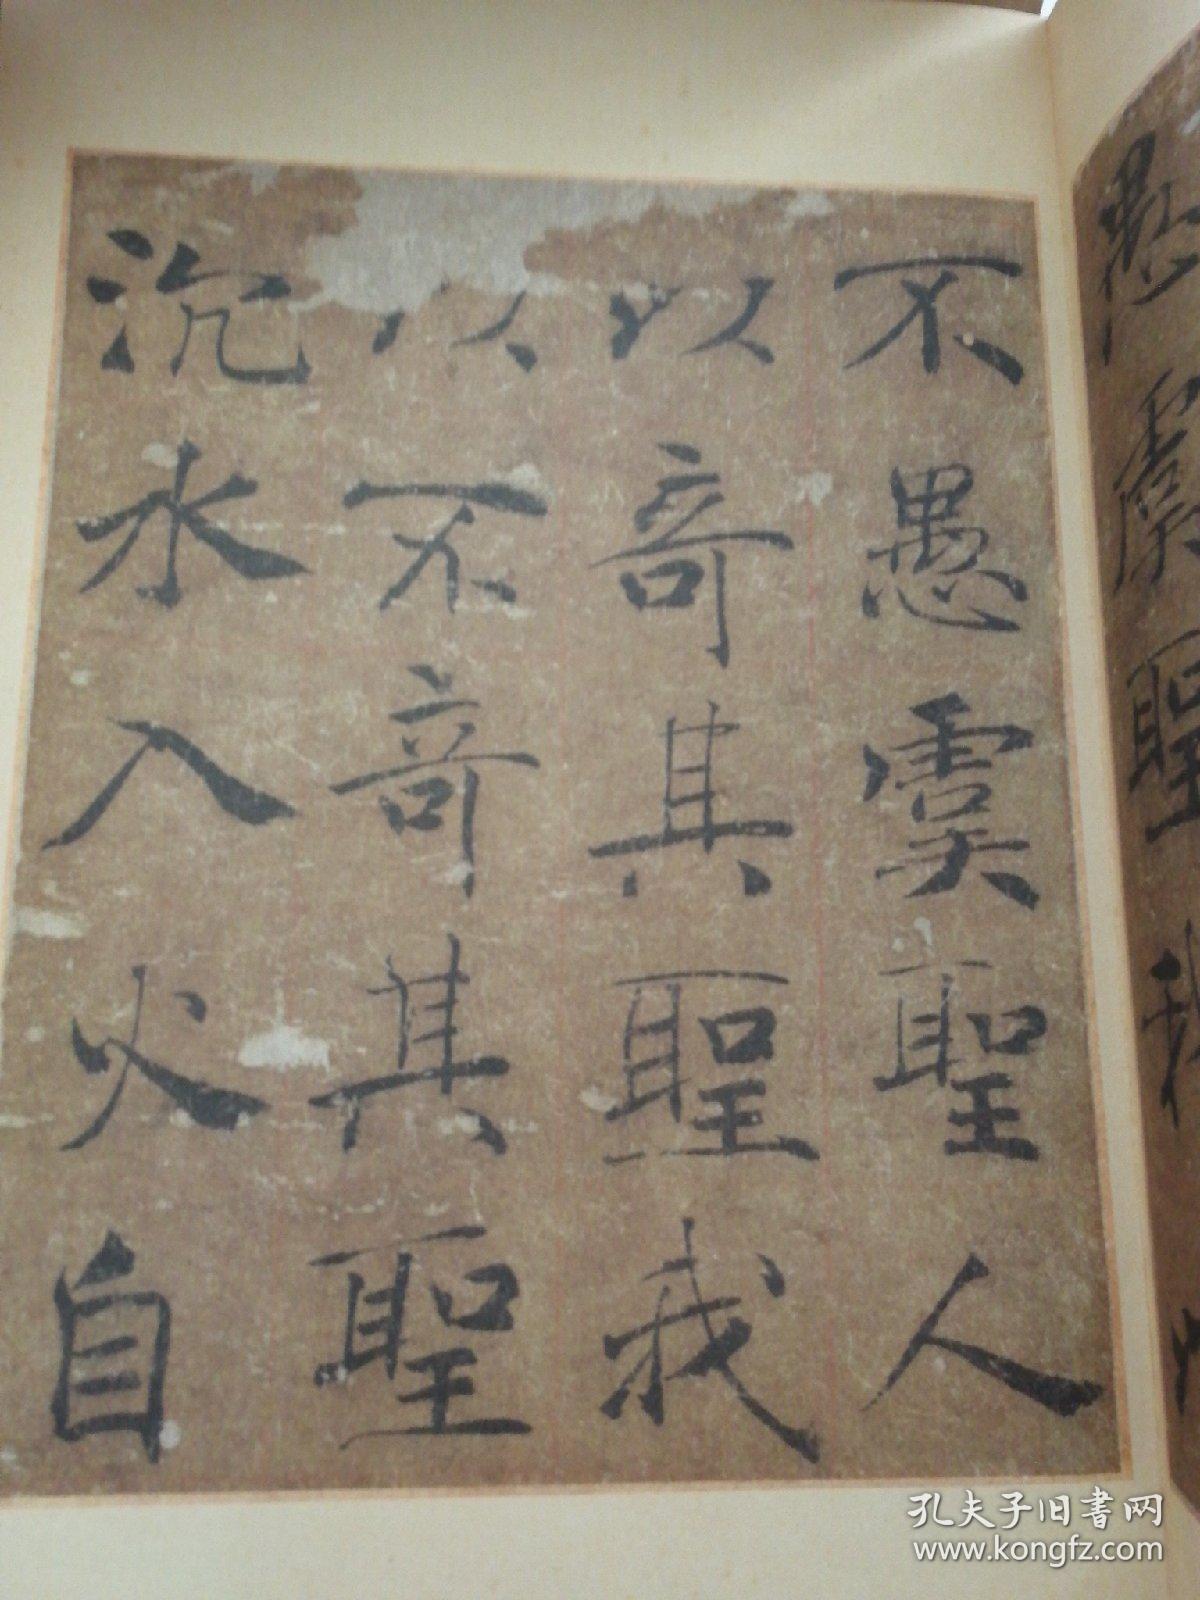 愚虞聖我
不愚虞聖人
以奇其聖我
以不奇其聖
沉水入火自
孔夫子旧书网
www.kongfz.com